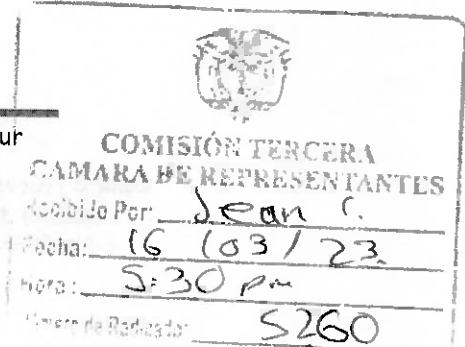 ur
COMISIÓN TERCERA
CAMARA DE REPRESENTANTES
Recibido Por: Jean C.
Fecha: 16 / 03 / 23
Hora: 5:30 pm
Número de Radicado: 5260